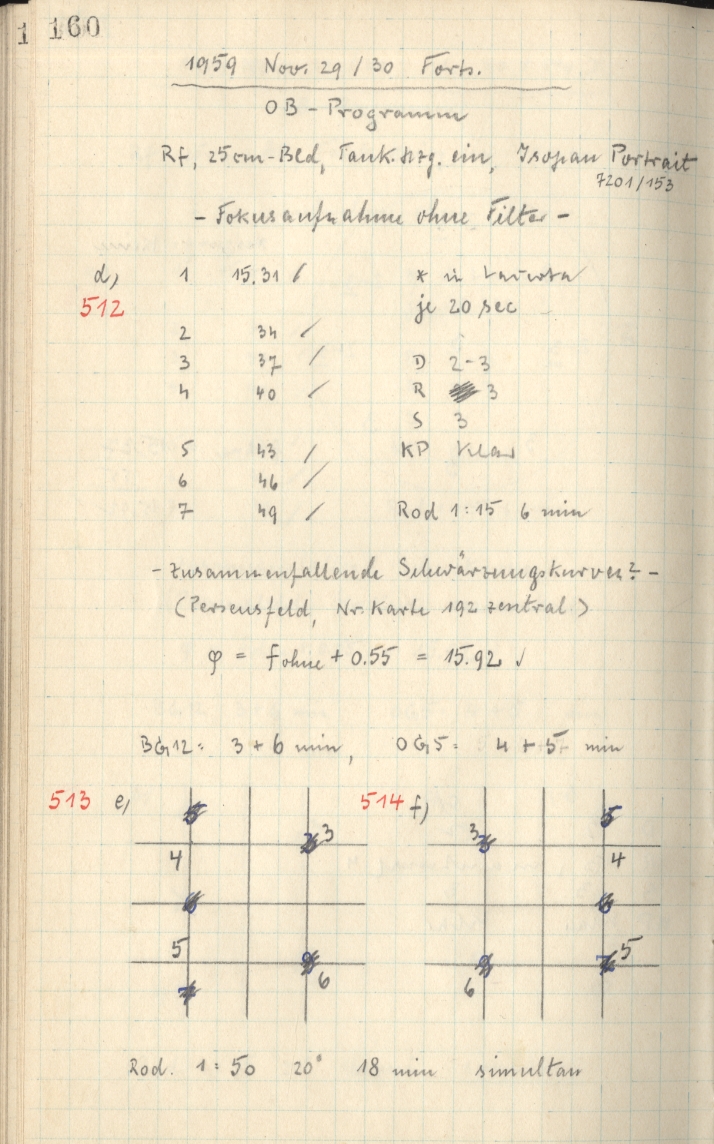 1 160
1959 Nov. 29/30 Forts.
OB-Programm
Rf, 25cm-Bld, Tank.hzg. ein, Isopan Portrait
7201/153
- Fokusaufnahme ohne Filter -
d) 1 15.31 / * in
512 je 20 sec
2 34 /
3 37 / D 2-3
4 40 / R 3
S 3
5 43 / KP klar
6 46 /
7 49 / Rod 1:15 6 min
- Zusammenfallende Schwärzungskurven? -
(Perseusfeld, Nr. Karte 192 zentral)
φ = fohne + 0.55 = 15.92 √
BG12: 3 + 6 min, OG5: 4 + 5 min
513 e) 514 f)
3 3
4 4
5 5
6 6
Rod. 1:50 20° 18 min simultan